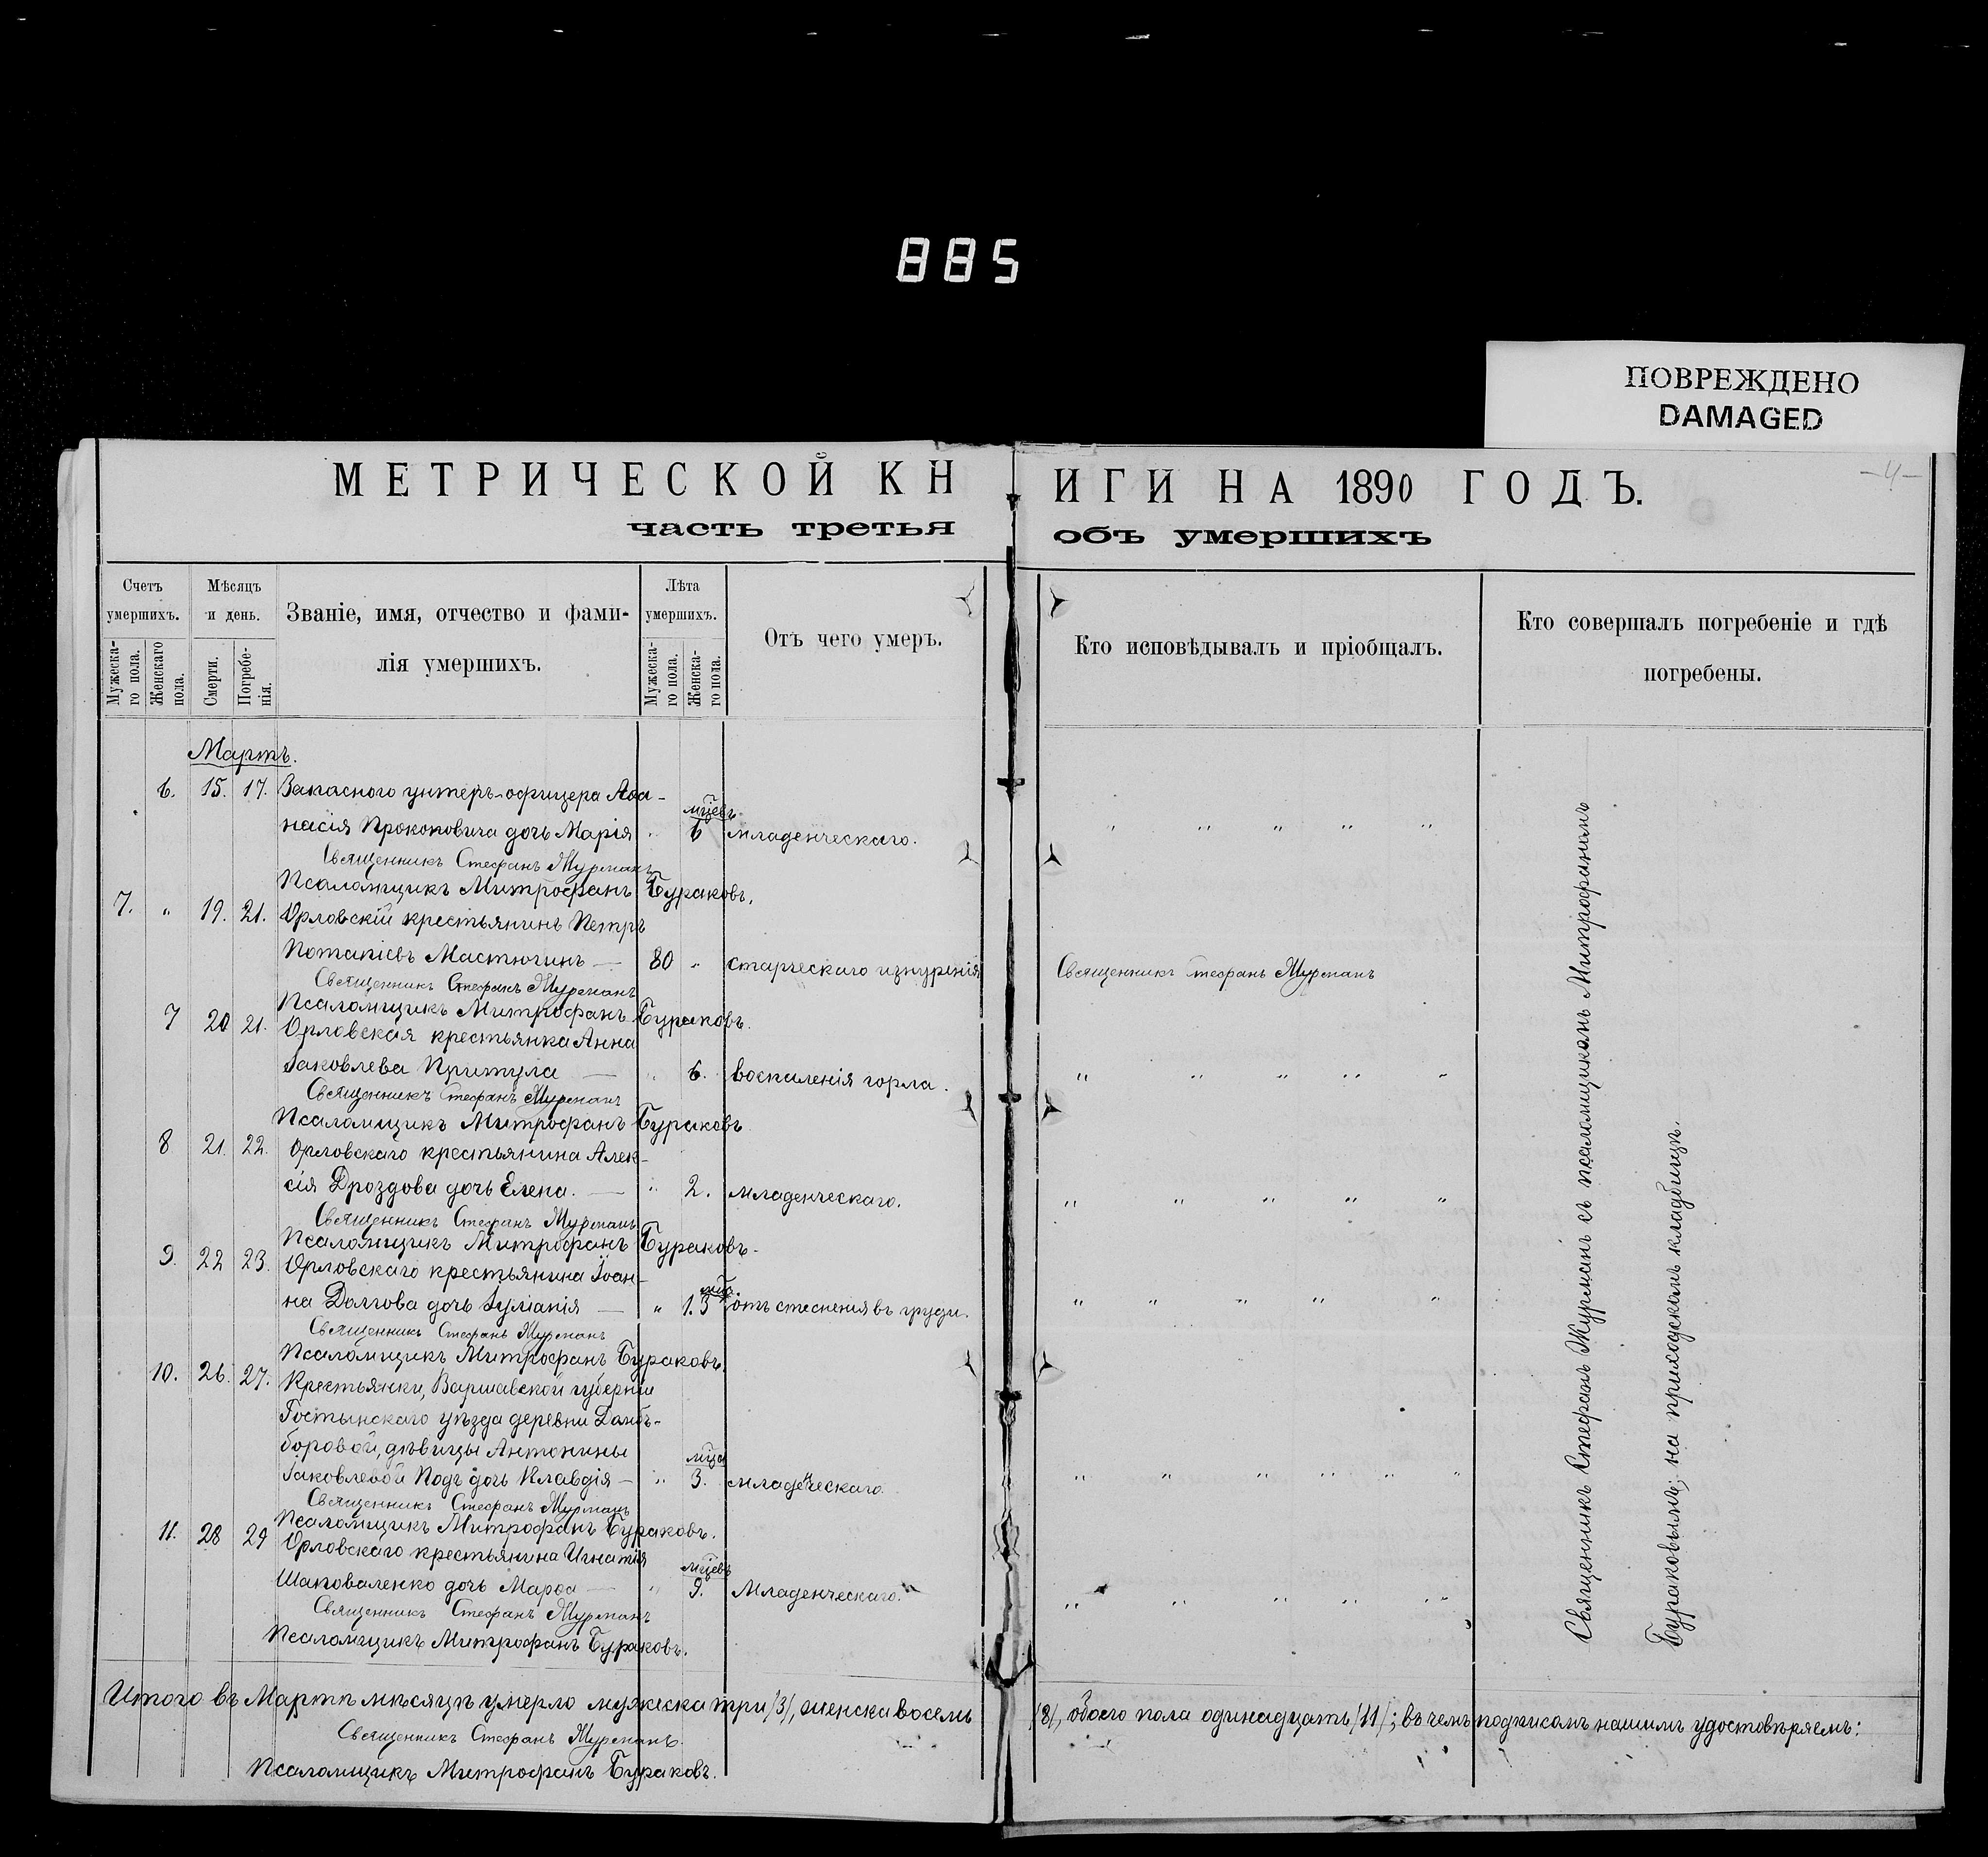 885
ПОВРЕЖДЕНО
DAMAGED
-4-
МЕТРИЧЕСКОЙ КНИГИ НА 1890 ГОДЪ.
часть третья объ умершихъ
Счетъ умершихъ.
Мужеска-го пола.
Женскаго пола.
Мѣсяцъ и день.
Смерти.
Погребе-нія.
Званіе, имя, отчество и фами-
лія умершихъ.
Лѣта умершихъ.
Мужеска-го пола.
Женска-го пола.
Отъ чего умеръ.
Кто исповѣдывалъ и пріобщалъ.
Кто совершалъ погребеніе и гдѣ
погребены.
Мартъ.
6. 15. 17. Запасного унтеръ-офицера Аѳа-
насія Прокоповича дочь Марія " мцевъ 6 младенческаго. " " " " "
Священникъ Стефанъ Журманъ
Псаломщикъ Митрофанъ Бураковъ.
7. " 19. 21. Орловскій крестьянинъ Петръ
Потапіевъ Мастюгинъ — 80 " старческаго изнуренія Священникъ Стефанъ Журманъ
Священникъ Стефанъ Журманъ
Псаломщикъ Митрофанъ Бураковъ.
7 20 21. Орловская крестьянка Анна
Іаковлева Притула — " 6. воспаленія горла. " " " " "
Священникъ Стефанъ Журманъ
Псаломщикъ Митрофанъ Бураковъ
8 21. 22. Орловскаго крестьянина Алек-
сія Дроздова дочь Елена. — " 2. младенческаго. " " " " "
Священникъ Стефанъ Журманъ
Псаломщикъ Митрофанъ Бураковъ.
9. 22 23. Орловскаго крестьянина Іоан-
на Долгова дочь Іуліанія — " 1. 3 отъ стесненія въ груди. " " " " "
Священникъ Стефанъ Журманъ
Псаломщикъ Митрофанъ Бураковъ.
10. 26. 27. Крестьянки, Варшавской губерніи
Гостынскаго уѣзда деревни Домбъ-
боровой, дѣвицы Антонины
Іаковлевой Подъ дочь Клавдія — " мца 3. младенческаго. " " " " " "
Священникъ Стефанъ Журманъ
Псаломщикъ Митрофанъ Бураковъ.
11. 28 29 Орловскаго крестьянина Игнатія
Шаповаленко дочь Марѳа — " мцевъ 9. Младенческаго. " " " " "
Священникъ Стефанъ Журманъ
Псаломщикъ Митрофанъ Бураковъ.
Священникъ Стефанъ Журманъ съ псаломщикомъ Митрофаномъ
Бураковымъ; на приходскомъ кладбищѣ.
Итого въ Мартѣ мѣсяцѣ умерло мужеска три /3/, женска восемь /8/, обоего пола одинадцать /11/; въ чемъ подписомъ нашимъ удостовѣряемъ:
Священникъ Стефанъ Журманъ.
Псаломщикъ Митрофанъ Бураковъ.